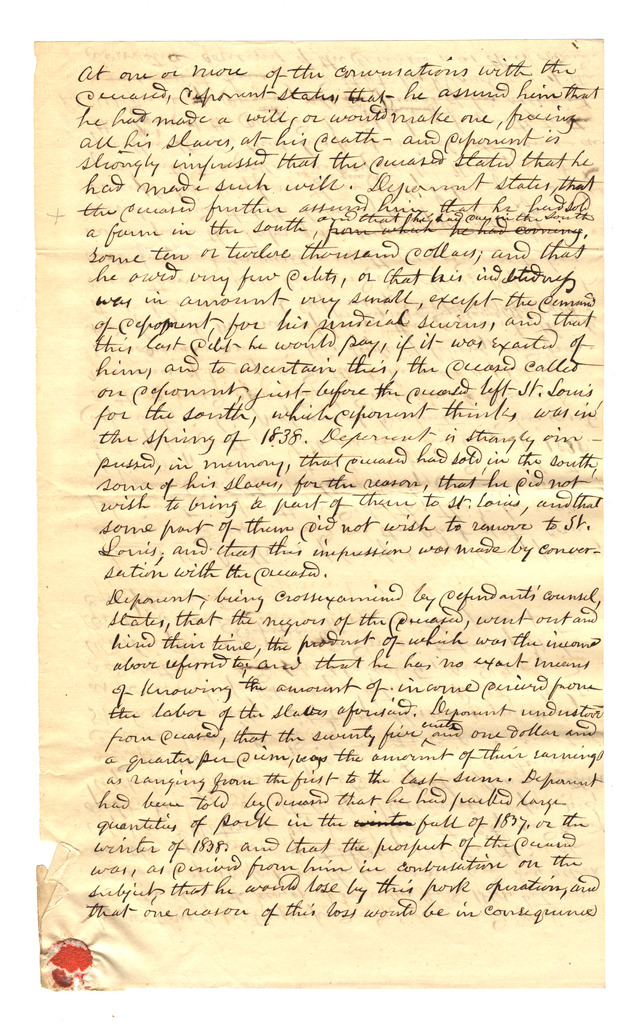 At one or more of the conversations with the
deceased, deponent states, that he assured him that
he had made a will, or would make one, freeing
all his slaves, at his death - and deponent is
strongly impressed that the deceased stated that he
had made such will. Deponent states, that
the deceased further assured him, that he had sold
a farm in the south, and that he had due, in the South
from which he had coming,
some ten or twelve thousand dollars; and that
he owed very few debts, or that his indebtedness
was in amount very small, except the demand
of deponent, for his medical services, and that
this last debt he would pay, if it was exacted of
him, and to ascertain this, the deceased called
on deponent, just before the deceased left St. Louis,
for the south, which deponent thinks, was in
the spring of 1838. Deponent is strongly im-
pressed, in memory, that deceased had sold, in the south,
some of his slaves, for the reason, that he did not
wish to bring a part of them to St. Louis, and that
some part of them did not wish to remove to St.
Louis; and that this impression was made by conver-
sation with the deceased.
Deponent, being crossexamined by defendants' counsel,
states, that the negroes of the deceased, went out and
hired their time, the product of which was the income
above referred to; and that he has no exact means
of knowing the amount of income derived from
the labor of the slaves aforesaid. Deponent understood
from deceased, that the seventy five cents and one dollar and
a quarter per diem, was the amount of their earnings
as ranging from the first to the last sum. Deponent
had been told by deceased that he had packed large
quantities of pork in the winter fall of 1837, or the
winter of 1838, and that the prospect of the deceased
was, as derived from him in conversation on the
subject, that he would lose by this pork operation, and
that one reason of this loss would be in consequence